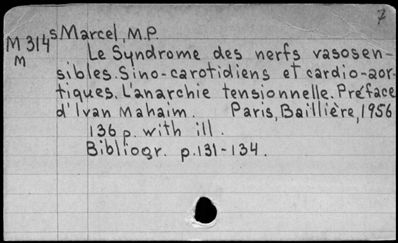 7
M 314s Marcel, M.P.
M
Le Syndrome des nerfs vasosen-
sibles. Sino-carotidiens et cardio-aor-
tiques. L'anarchie tensionnelle. Préface
d'Ivan Mahaim. Paris, Baillière, 1956
136 p. with ill.
Bibliogr. p.131-134.